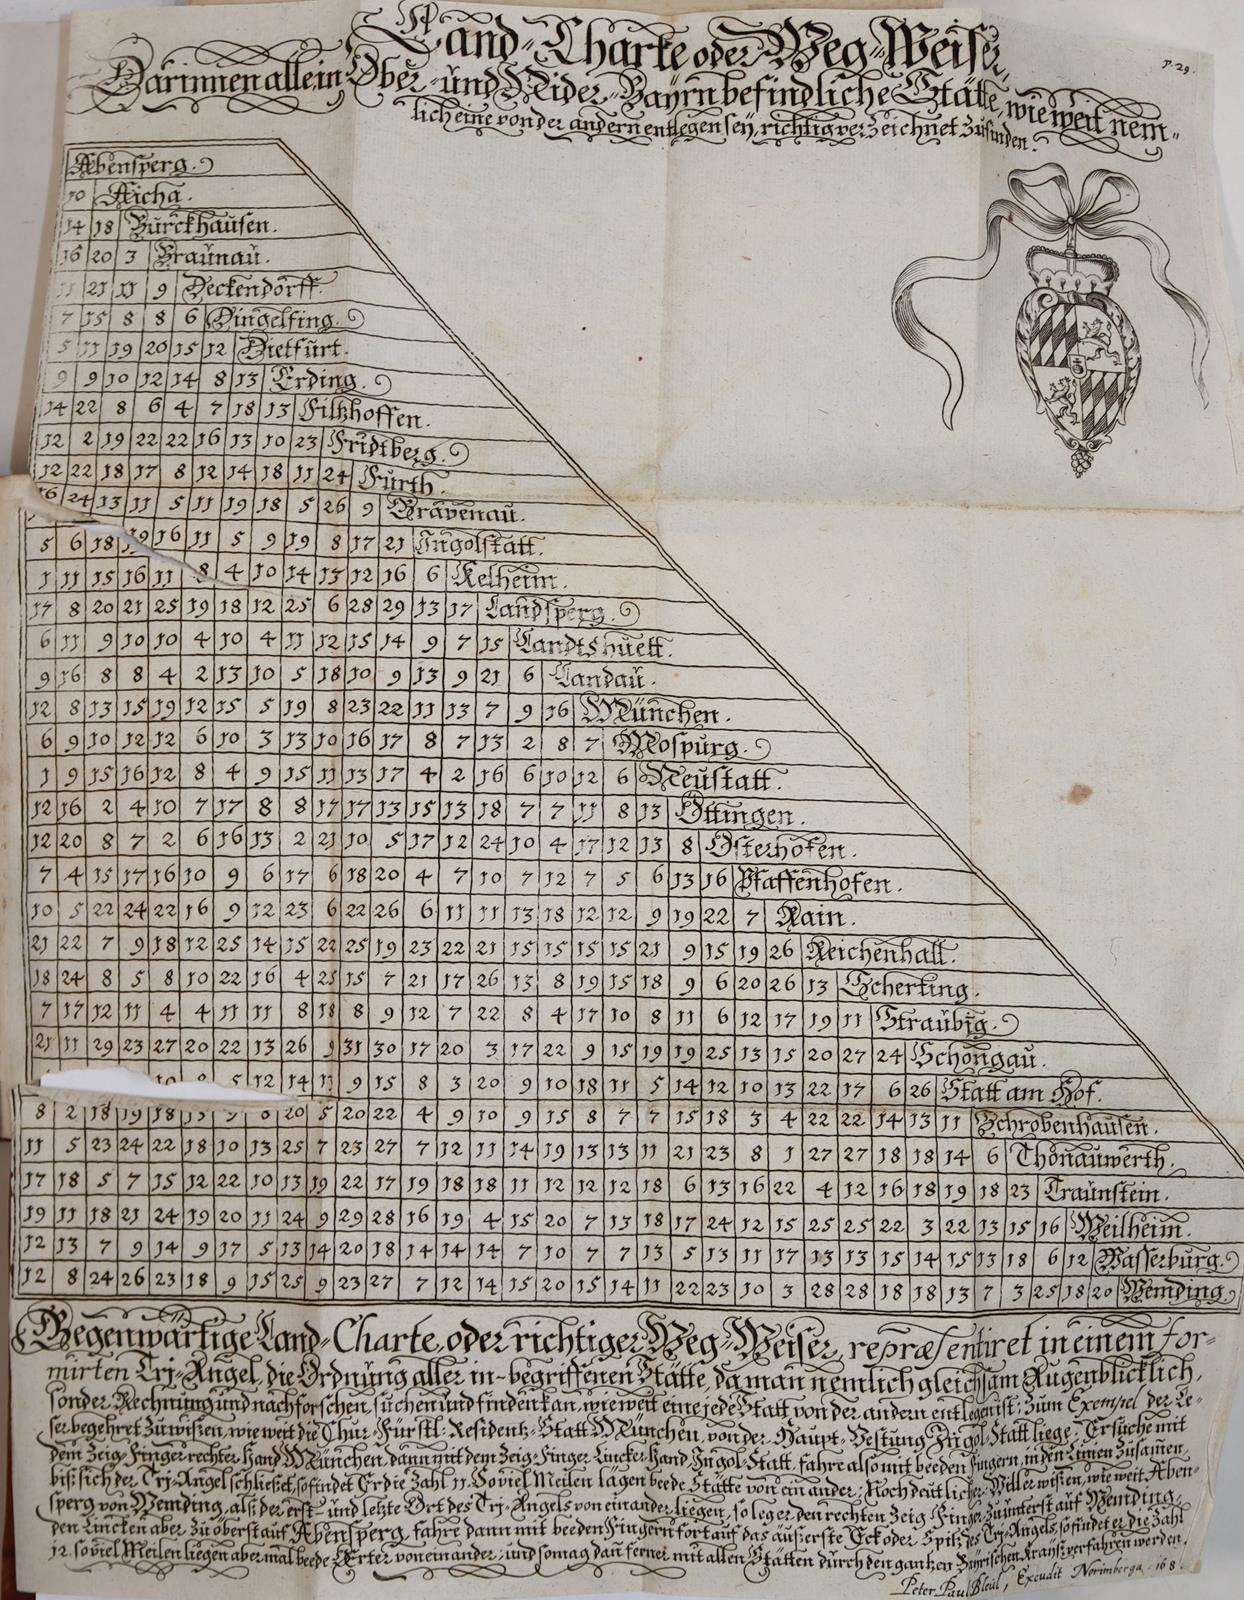 Land-Charte oder Weg-Weiser,
p. 29.
Darinnen alle in Ober- und Nider-Bayrn befindliche Stätte, wie weit nem-
lich eine von der andern entlegen sey, richtig verzeichnet zufinden.
Abensperg.
10 Aicha.
14 18 Burckhausen.
16 20 3 Braunau.
11 21 11 9 Deckendorff.
7 15 8 8 6 Dingelfing.
5 11 19 20 15 12 Dietfurt.
9 9 10 12 14 8 13 Erding.
14 22 8 6 4 7 18 13 Filtzhoffen.
12 2 19 22 22 16 13 10 23 Fridtberg.
12 22 18 17 8 12 14 18 11 24 Furth.
16 24 13 11 5 11 19 18 5 26 9 Gravenau.
5 6 18 19 16 11 5 9 19 8 17 21 Ingolstatt.
1 11 15 16 11 8 4 10 14 13 12 16 6 Kelheim.
17 8 20 21 25 19 18 12 25 6 28 29 13 17 Landsperg.
6 11 9 10 10 4 10 4 11 12 15 14 9 7 15 Landtshuett.
9 16 8 8 4 2 13 10 5 18 10 9 13 9 21 6 Landau.
12 8 13 15 19 12 15 5 19 8 23 22 11 13 7 9 16 München.
6 9 10 12 12 6 10 3 13 10 16 17 8 7 13 2 8 7 Mospurg.
1 9 15 16 12 8 4 9 15 11 13 17 4 2 16 6 10 12 6 Neustatt.
12 16 2 4 10 7 17 8 8 17 17 13 15 13 18 7 7 11 8 13 Öttingen.
12 20 8 7 2 6 16 13 2 21 10 5 17 12 24 10 4 17 12 13 8 Osterhofen.
7 4 15 17 16 10 9 6 17 6 18 20 4 7 10 7 12 7 5 6 13 16 Pfaffenhofen.
10 5 22 24 22 16 9 12 23 6 22 26 6 11 11 13 18 12 12 9 19 22 7 Rain.
21 22 7 9 18 12 25 14 15 22 25 19 23 22 21 15 15 15 15 21 9 15 19 26 Reichenhall.
18 24 8 5 8 10 22 16 4 25 15 7 21 17 26 13 8 19 15 18 9 6 20 26 13 Scherting.
7 17 12 11 4 4 11 11 8 18 8 9 12 7 22 8 4 17 10 8 11 6 12 17 19 11 Straubig.
21 11 29 23 27 20 22 13 26 9 31 30 17 20 3 17 22 9 15 19 19 25 13 15 20 27 24 Schongau.
10 8 5 12 14 11 9 15 8 3 20 9 10 18 11 5 14 12 10 13 22 17 6 26 Statt am Hof.
8 2 18 19 18 9 20 5 20 22 4 9 10 9 15 8 7 7 15 18 3 4 22 22 14 13 11 Schrobenhausen.
11 5 23 24 22 18 10 13 25 7 23 27 7 12 11 14 19 13 13 11 21 23 8 1 27 27 18 18 14 6 Thonauwerth.
17 18 5 7 15 12 22 10 13 19 22 17 19 18 18 11 12 12 12 18 6 13 16 22 4 12 16 18 19 18 23 Traunstein.
19 11 18 21 24 19 20 11 24 9 29 28 16 19 4 15 20 7 13 18 17 24 12 15 25 25 22 3 22 13 15 16 Weilheim.
12 13 7 9 14 9 17 5 13 14 20 18 14 14 14 7 10 7 7 13 5 13 11 17 13 13 15 14 15 13 18 6 12 Wasserburg.
12 8 24 26 23 18 9 15 25 9 23 27 7 12 14 15 20 15 14 11 22 23 10 3 28 28 18 18 13 7 3 25 18 20 Wemding.
Gegenwärtige Land-Charte, oder richtiger Weg-Weiser, repræsentiret in einem for-
mirten Tri-Angel, die Ordnung aller in-begriffenen Stätte, da man nemlich gleichsam Augenblicklich,
sonder Rechnung und nachforschen, suchen und finden kan, wie weit eine jede Statt von der andern entlegen ist: Zum Exempel der Le-
ser begehret zu wissen, wie weit die Chur-Fürstl: Residentz-Statt München, von der Haupt-Vestung Ingol-Statt liege: Er suche mit
dem Zeig-Finger rechter Hand München, dann mit dem Zeig-Finger Lincker Hand Ingol-Statt, fahre also mit beeden Fingern, in den Linien zusamen,
biß sich der Tri-Angel schließet, so findet Er die Zahl 11. So viel Meilen lägen beede Stätte von ein ander: Noch deutlicher, Will er wissen, wie weit Aben-
sperg von Wemding, als der erst- und letzte Ort des Tri-Angels von einander liegen, so leger den rechten Zeig-Finger zu unterst auf Wemding,
den Lincken aber zu oberst auf Abensperg, fahre dann mit beeden Fingern fort auf das äußerste Eck oder Spitz des Tri-Angels, so findet er die Zahl
12. so viel Meilen liegen aber mal beede Örter von einander; und so mag dan ferner mit allen Stätten durch den gantzen Bayrischen Krayß verfahren werden.
Peter Paul Bleül, Excudit Norimberga. 168